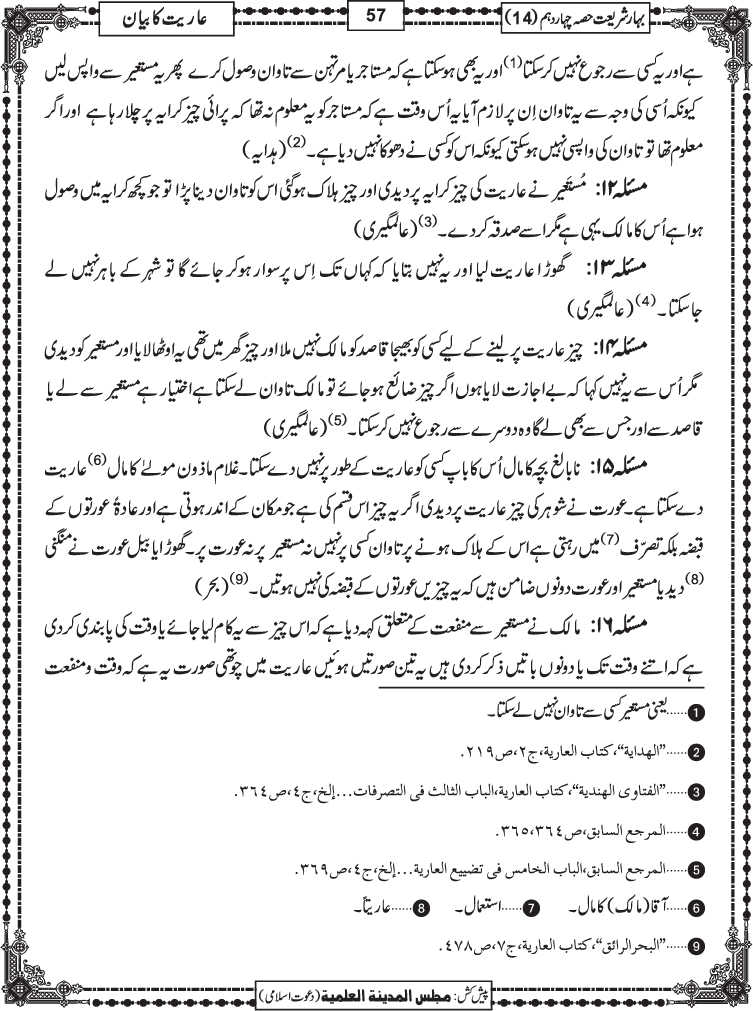 بہارِ شریعت حصہ چہاردہم (14)
57
عاریت کا بیان
ہے اور یہ کسی سے رجوع نہیں کرسکتا(1) اور یہ بھی ہوسکتا ہے کہ مستاجر یا مرتہن سے تاوان وصول کرے پھر یہ مستعیر سے واپس لیں
کیونکہ اُسی کی وجہ سے یہ تاوان اِن پر لازم آیا یہ اُس وقت ہے کہ مستاجر کو یہ معلوم نہ تھا کہ پرائی چیز کرایہ پر چلا رہا ہے اور اگر
معلوم تھا تو تاوان کی واپسی نہیں ہوسکتی کیونکہ اس کو کسی نے دھوکا نہیں دیا ہے۔(2) (ہدایہ)
مسئلہ ۱۲: مُستَعیر نے عاریت کی چیز کرایہ پر دیدی اور چیز ہلاک ہوگئی اس کو تاوان دینا پڑا تو جو کچھ کرایہ میں وصول
ہوا ہے اُس کا مالک یہی ہے مگر اسے صدقہ کردے۔(3) (عالمگیری)
مسئلہ ۱۳: گھوڑا عاریت لیا اور یہ نہیں بتایا کہ کہاں تک اِس پر سوار ہوکر جائے گا تو شہر کے باہر نہیں لے
جاسکتا۔(4) (عالمگیری)
مسئلہ ۱۴: چیز عاریت پر لینے کے لیے کسی کو بھیجا قاصد کو مالک نہیں ملا اور چیز گھر میں تھی یہ اوٹھا لایا اور مستعیر کو دیدی
مگر اُس سے یہ نہیں کہا کہ بے اجازت لایا ہوں اگر چیز ضائع ہوجائے تو مالک تاوان لے سکتا ہے اختیار ہے مستعیر سے لے یا
قاصد سے اور جس سے بھی لے گا وہ دوسرے سے رجوع نہیں کرسکتا۔(5) (عالمگیری)
مسئلہ ۱۵: نابالغ بچہ کا مال اُس کا باپ کسی کو عاریت کے طور پر نہیں دے سکتا۔ غلام ماذون مولےٰ کا مال(6) عاریت
دے سکتا ہے۔ عورت نے شوہر کی چیز عاریت پر دیدی اگر یہ چیز اس قسم کی ہے جو مکان کے اندر ہوتی ہے اور عادۃً عورتوں کے
قبضہ بلکہ تصرّف(7) میں رہتی ہے اس کے ہلاک ہونے پر تاوان کسی پر نہیں نہ مستعیر پر نہ عورت پر۔ گھوڑا یا بیل عورت نے منگنی
(8) دیدیا مستعیر اور عورت دونوں ضامن ہیں کہ یہ چیزیں عورتوں کے قبضہ کی نہیں ہوتیں۔(9) (بحر)
مسئلہ ۱۶: مالک نے مستعیر سے منفعت کے متعلق کہہ دیا ہے کہ اس چیز سے یہ کام لیا جائے یا وقت کی پابندی کردی
ہے کہ اتنے وقت تک یا دونوں باتیں ذکر کردی ہیں یہ تین صورتیں ہوئیں عاریت میں چوتھی صورت یہ ہے کہ وقت و منفعت
1......یعنی مستعیر کسی سے تاوان نہیں لے سکتا۔
2......"الھدایة"، کتاب العاریة، ج۲، ص۲۱۹.
3......"الفتاوی الھندیة"، کتاب العاریة، الباب الثالث فی التصرفات...إلخ، ج٤، ص٣٦٤.
4......المرجع السابق، ص٣٦٤، ٣٦٥.
5......المرجع السابق، الباب الخامس فی تضییع العاریة...إلخ، ج٤، ص٣٦٩.
6......آقا (مالک) کا مال۔ 7......استعمال۔ 8......عاریتاً۔
9......"البحرالرائق"، کتاب العاریة، ج٧، ص٤٧٨.
پیش کش: مجلس المدینة العلمیة (دعوت اسلامی)